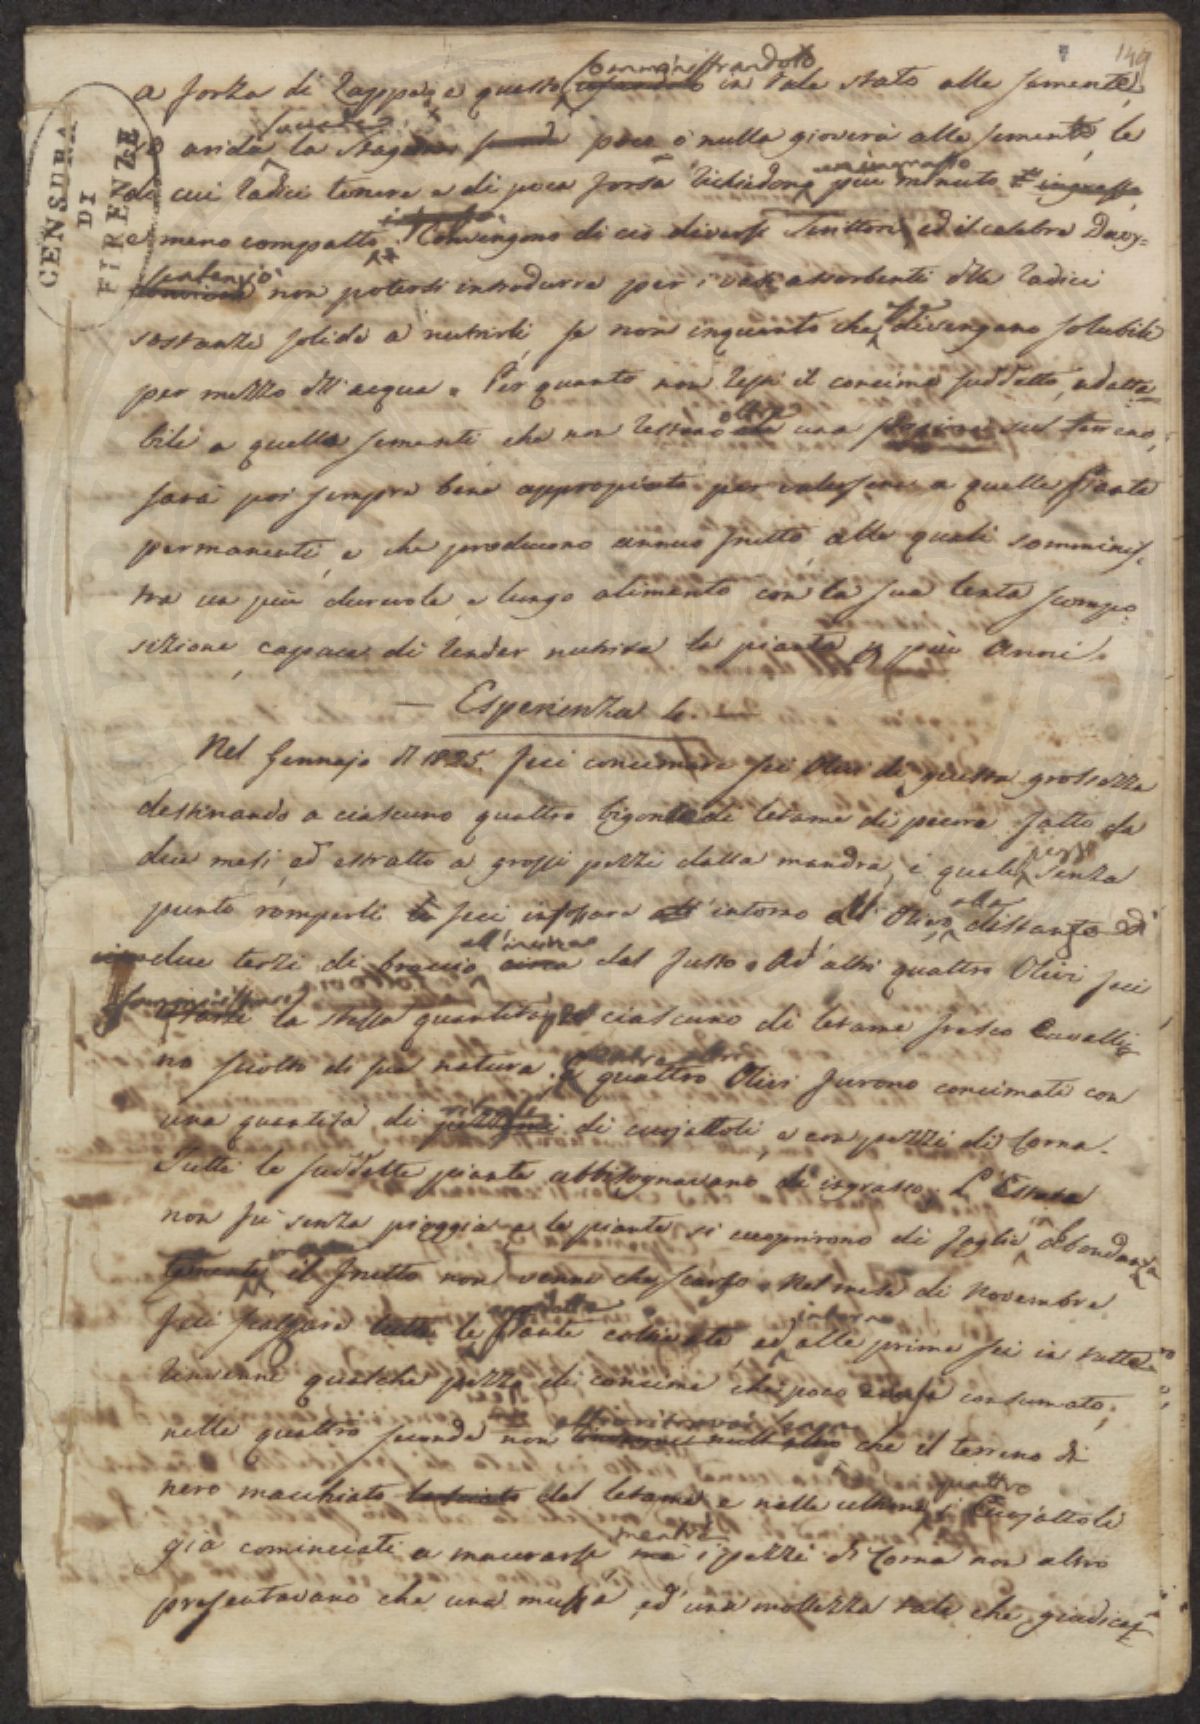 149
CENSURA
DI
FIRENZE
somministrandolo
a forza di Zappa, e questo in tale stato alle semente,
arida la stagione poco o nulla gioverà alle semente, le
un ingrasso
di cui radici tenere e di poca forza richiedono più minuto ingrasso
e meno compatto. Convengono di ciò diversi Scrittori, ed il celebre Davy
non potersi introdurre per i vasi assorbenti delle radici
sostanze solide a nutrirli se non inquanto che divengano solubili
per mezzo dell'acqua. Per quanto non resti il concime suddetto, adatta
bile a quelle sementi che non restano oltre una stagione sul terreno,
sarà poi sempre bene appropriato per valersene a quelle Piante
permanenti, e che producono annuo frutto, alle quali somminis
tra un più durevole e lungo alimento con la sua lenta scompo
sizione, capace di render nutrita la pianta p più Anni.
— Esperienza 1e. —
Nel Gennajo del 1825. feci concimare sei Olivi di giusta grossezza
destinando a ciascuno quattro bigonce di letame di pecora fatto da
due mesi, ed estratto a grossi pezzi dalla mandra, i quali senza
punto romperli feci infossare intorno all' Olivo alla distanza di
due terzi di braccio all'incirca circa dal fusto. Ad altri quattro Olivi feci
la stessa quantità ciascuno di letame fresco Cavalli
no sciolto di sua natura. quattro Olivi furono concimati con
una quantità di di cuojattoli, e con pezzi di Corna.
Tutte le suddette piante abbisognavano di ingrasso. L'Estate
non fù senza pioggia e le piante si cuoprirono di foglie abbondan
temente il frutto non venne che scarso. Nel mese di Novembre
intorno
feci scalzare tutte le Piante coltivate, ed alle prime sei in tutte
rinvenni qualche pezzo di concime che poco erasi consumato,
nelle quattro seconde non che il terreno di
quattro
nero macchiato lasciato dal letame e nelle ultime i Cuojattoli
mentre
già cominciati a macerarsi ma i pezzi di Corna non altro
presentavano che una muffa, ed una mollezza tale che giudicai